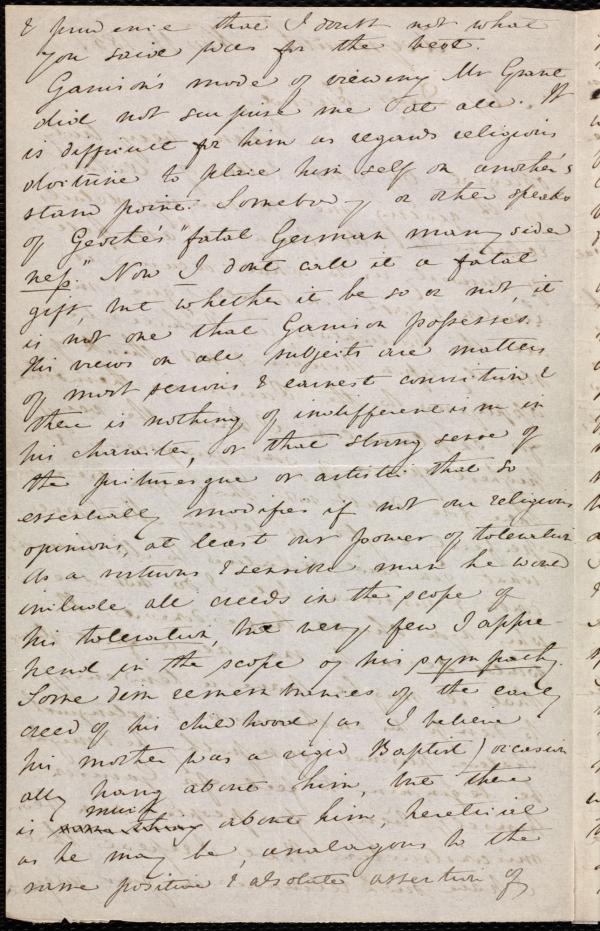 & prudence that I doubt not what
you said was for the best.
Garrison's mode of viewing Mr Grant
did not surprise me at all. It
is difficult for him as regards religious
doctrine to place him self on another's
stand point. Somebody or other speaks
of Goethe's "fatal German many sided
ness." Now I dont call it a fatal
gift, but whether it be so or not, it
is not one that Garrison possesses.
His views on all subjects are matters
of most serious & earnest conviction &
there is nothing of indifferentism in
his character, or that strong sense of
the picturesque or artistic that so
essentially modifies if not our religious
opinions, at least our power of toleration.
As a virtuous & sensible man he would
include all creeds in the scope of
his toleration, but very few I appre-
hend in the scope of his sympathy.
Some dim remembrances of the early
creed of his childhood (as I believe
his mother was a rigid Baptist) occasion
ally hang about him, but there
is much about him, heretical
as he may be, analagous to the
same positive & absolute assertion of